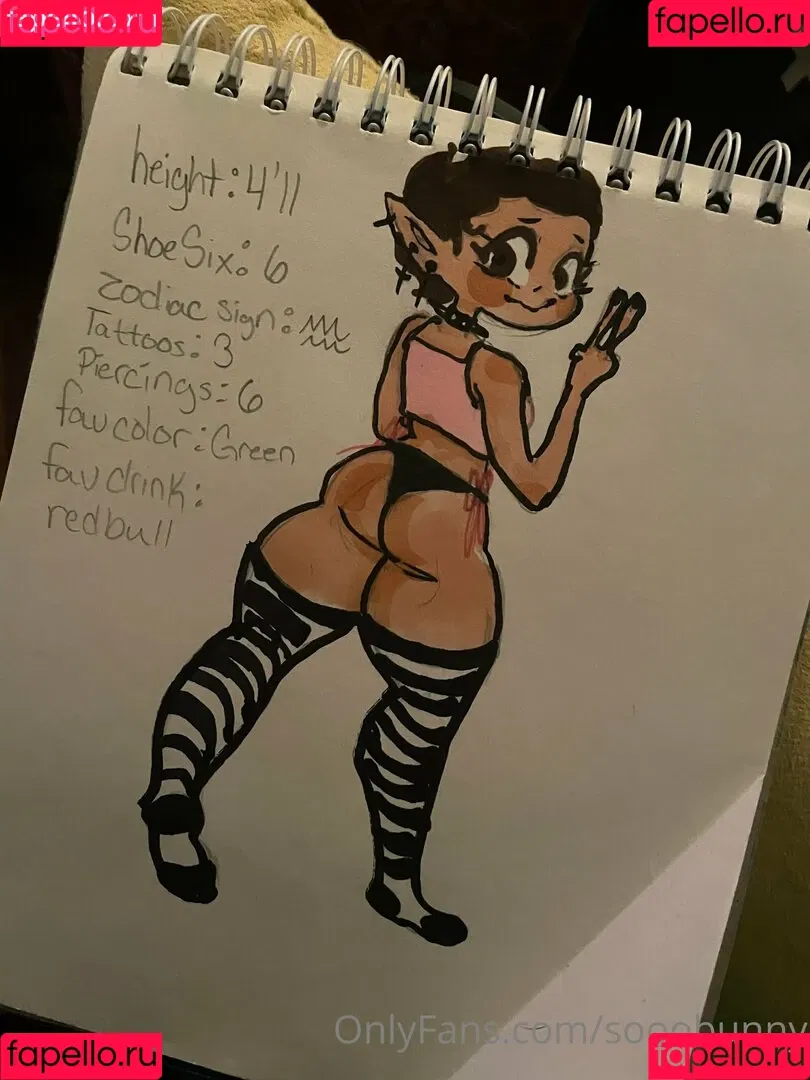 fapello.ru
fapello.ru
height: 4'11
Shoe Six: 6
Zodiac sign: ♒
Tattoos: 3
Piercings: 6
fav color: Green
fav drink:
redbull
OnlyFans.com/soooobunny
fapello.ru
fapello.ru